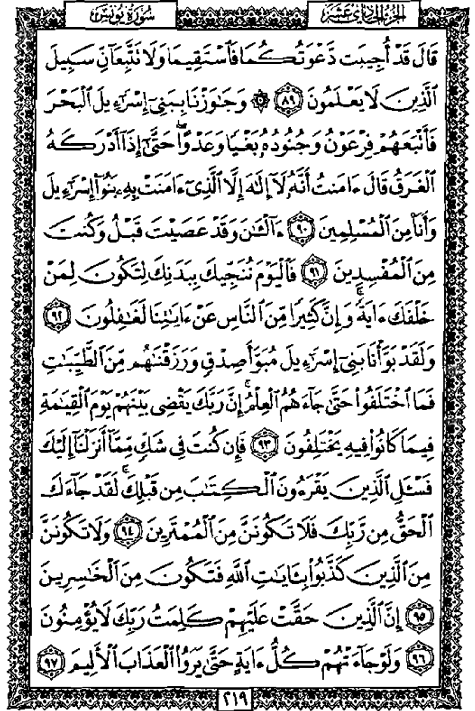 الجزء الحادي عشر سورة يونس
قَالَ قَدْ أُجِيبَت دَّعْوَتُكُمَا فَٱسْتَقِيمَا وَلَا تَتَّبِعَآنِّ سَبِيلَ
ٱلَّذِينَ لَا يَعْلَمُونَ ٨٩ ۞ وَجَٰوَزْنَا بِبَنِىٓ إِسْرَٰٓءِيلَ ٱلْبَحْرَ
فَأَتْبَعَهُمْ فِرْعَوْنُ وَجُنُودُهُۥ بَغْيًا وَعَدْوًا ۖ حَتَّىٰٓ إِذَآ أَدْرَكَهُ
ٱلْغَرَقُ قَالَ ءَامَنتُ أَنَّهُۥ لَآ إِلَٰهَ إِلَّا ٱلَّذِىٓ ءَامَنَتْ بِهِۦ بَنُوٓا۟ إِسْرَٰٓءِيلَ
وَأَنَا۠ مِنَ ٱلْمُسْلِمِينَ ٩٠ ءَآلْـَٰٔنَ وَقَدْ عَصَيْتَ قَبْلُ وَكُنتَ
مِنَ ٱلْمُفْسِدِينَ ٩١ فَٱلْيَوْمَ نُنَجِّيكَ بِبَدَنِكَ لِتَكُونَ لِمَنْ
خَلْفَكَ ءَايَةً ۚ وَإِنَّ كَثِيرًا مِّنَ ٱلنَّاسِ عَنْ ءَايَٰتِنَا لَغَٰفِلُونَ ٩٢
وَلَقَدْ بَوَّأْنَا بَنِىٓ إِسْرَٰٓءِيلَ مُبَوَّأَ صِدْقٍ وَرَزَقْنَٰهُم مِّنَ ٱلطَّيِّبَٰتِ
فَمَا ٱخْتَلَفُوا۟ حَتَّىٰ جَآءَهُمُ ٱلْعِلْمُ ۚ إِنَّ رَبَّكَ يَقْضِى بَيْنَهُمْ يَوْمَ ٱلْقِيَٰمَةِ
فِيمَا كَانُوا۟ فِيهِ يَخْتَلِفُونَ ٩٣ فَإِن كُنتَ فِى شَكٍّ مِّمَّآ أَنزَلْنَآ إِلَيْكَ
فَسْـَٔلِ ٱلَّذِينَ يَقْرَءُونَ ٱلْكِتَٰبَ مِن قَبْلِكَ ۚ لَقَدْ جَآءَكَ
ٱلْحَقُّ مِن رَّبِّكَ فَلَا تَكُونَنَّ مِنَ ٱلْمُمْتَرِينَ ٩٤ وَلَا تَكُونَنَّ
مِنَ ٱلَّذِينَ كَذَّبُوا۟ بِـَٔايَٰتِ ٱللَّهِ فَتَكُونَ مِنَ ٱلْخَٰسِرِينَ
٩٥ إِنَّ ٱلَّذِينَ حَقَّتْ عَلَيْهِمْ كَلِمَتُ رَبِّكَ لَا يُؤْمِنُونَ
٩٦ وَلَوْ جَآءَتْهُمْ كُلُّ ءَايَةٍ حَتَّىٰ يَرَوُا۟ ٱلْعَذَابَ ٱلْأَلِيمَ ٩٧
٢١٩